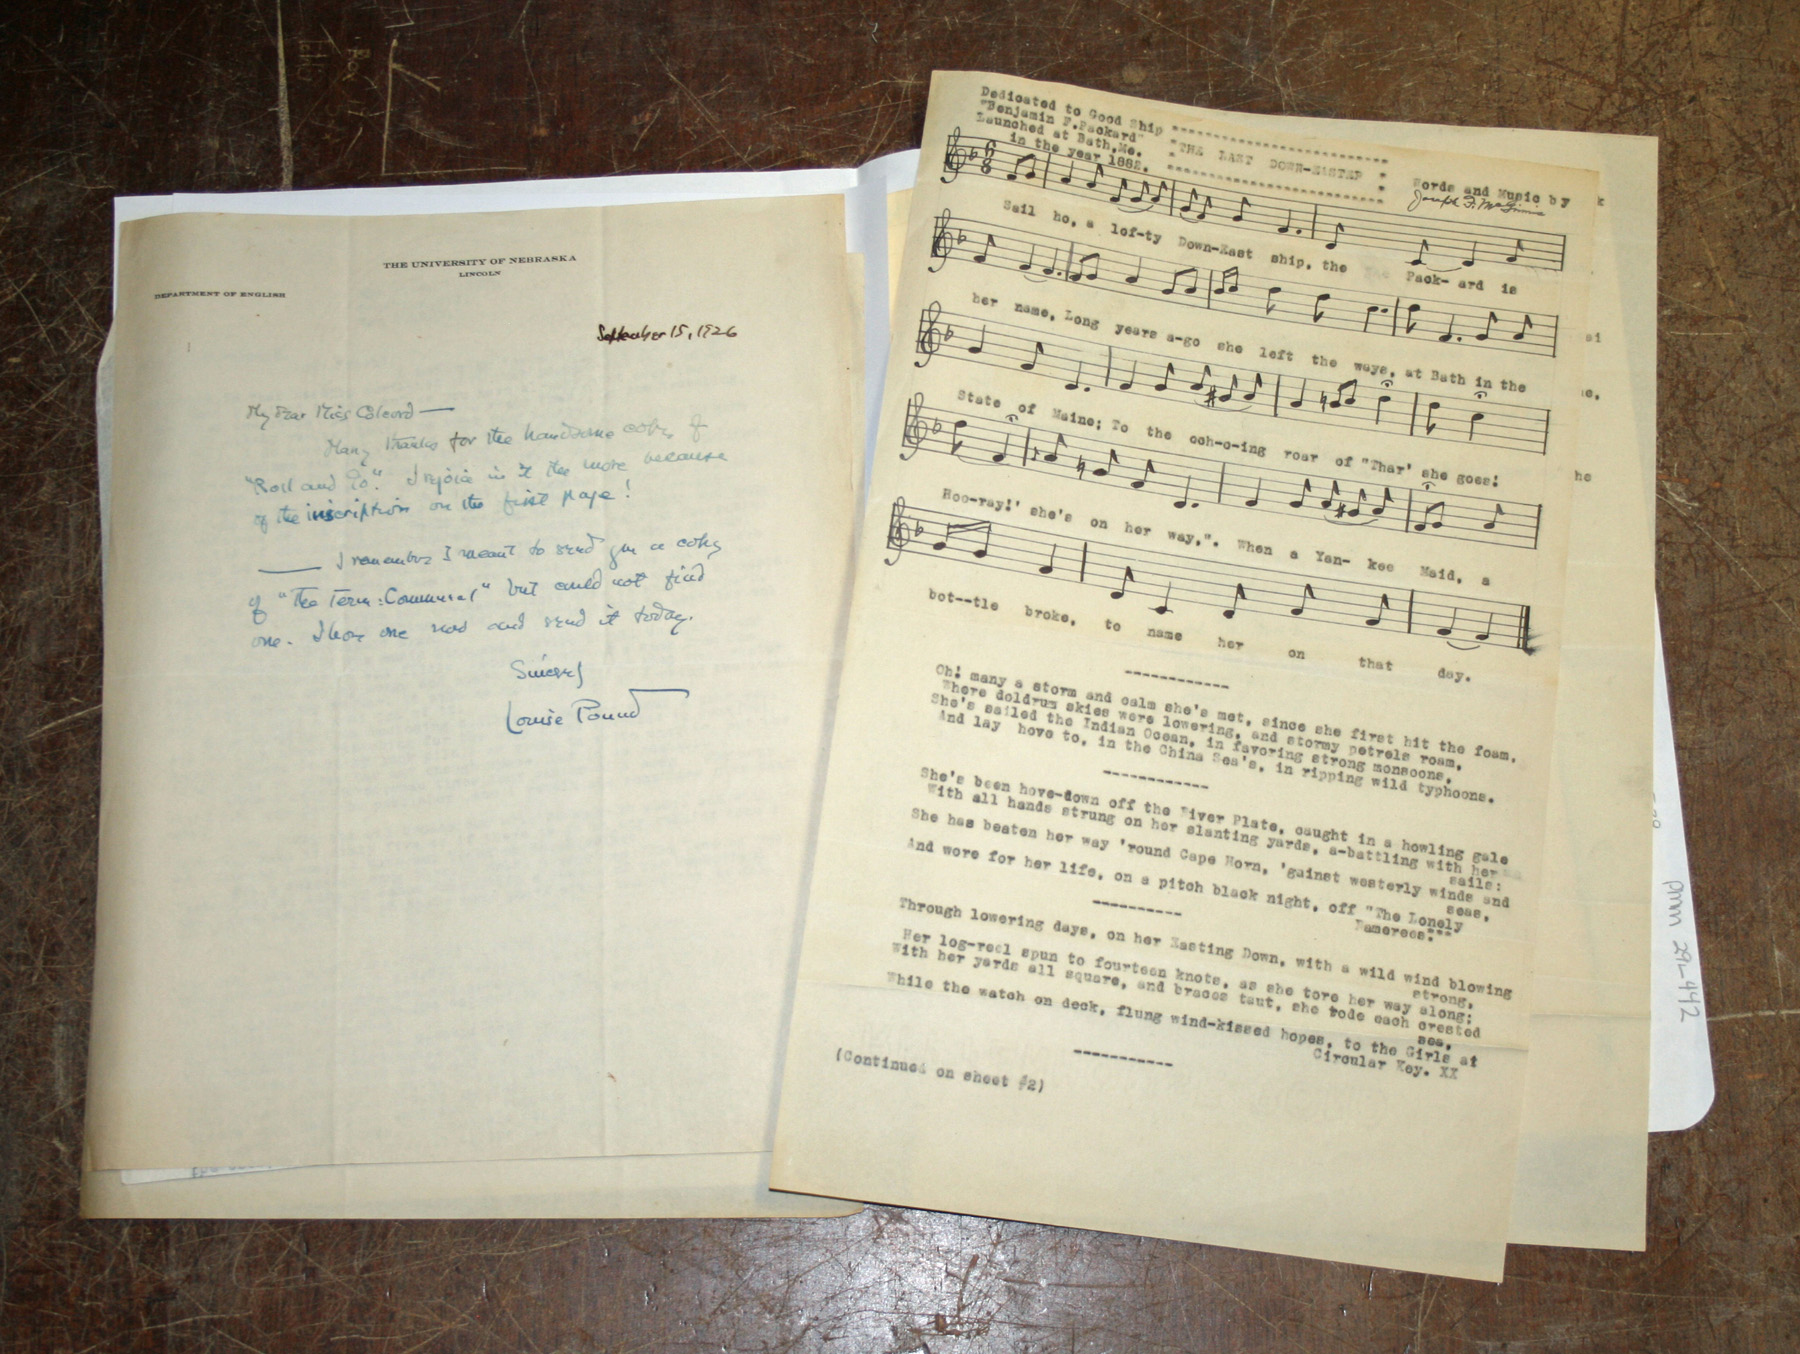 THE UNIVERSITY OF NEBRASKA
LINCOLN
DEPARTMENT OF ENGLISH
September 15, 1926
My dear Miss Colcord —
Many thanks for the handsome copy of
"Roll and Go". I rejoice in it the more because
of the inscription on the first page!
I remember I meant to send you a copy
of "The Term: Communal" but could not find
one. I have one now and send it today.
Sincerely
Louise Pound
Dedicated to Good Ship
"Benjamin F.Packard"
Launched at Bath,Me.
in the year 1882.
"THE LAST DOWN-EASTER"
Words and Music by
Joseph F. McGinnis
Sail ho, a lof-ty Down-East ship, the Pack- ard is
her name, Long years a-go she left the ways, at Bath in the
State of Maine; To the ooh-o-ing roar of "Thar' she goes!
Hoo-ray!' she's on her way,". When a Yan- kee Maid, a
bot--tle broke, to name her on that day.
Oh! many a storm and calm she's met, since she first hit the foam,
Where doldrum skies were lowering, and stormy petrels roam,
She's sailed the Indian Ocean, in favoring strong monsoons,
And lay hove to, in the China Sea's, in ripping wild typhoons.
She's been hove-down off the River Plate, caught in a howling gale
With all hands strung on her slanting yards, a-battling with her
sails;
She has beaten her way 'round Cape Horn, 'gainst westerly winds and
seas,
And wore for her life, on a pitch black night, off "The Lonely
Ramerees"
Through lowering days, on her Easting Down, with a wild wind blowing
strong,
Her log-reel spun to fourteen knots, as she tore her way along;
With her yards all square, and braces taut, she rode each crested
sea,
While the watch on deck, flung wind-kissed hopes, to the Girls at
Circular Key. XX
(Continued on sheet #2)
pmm 29-442